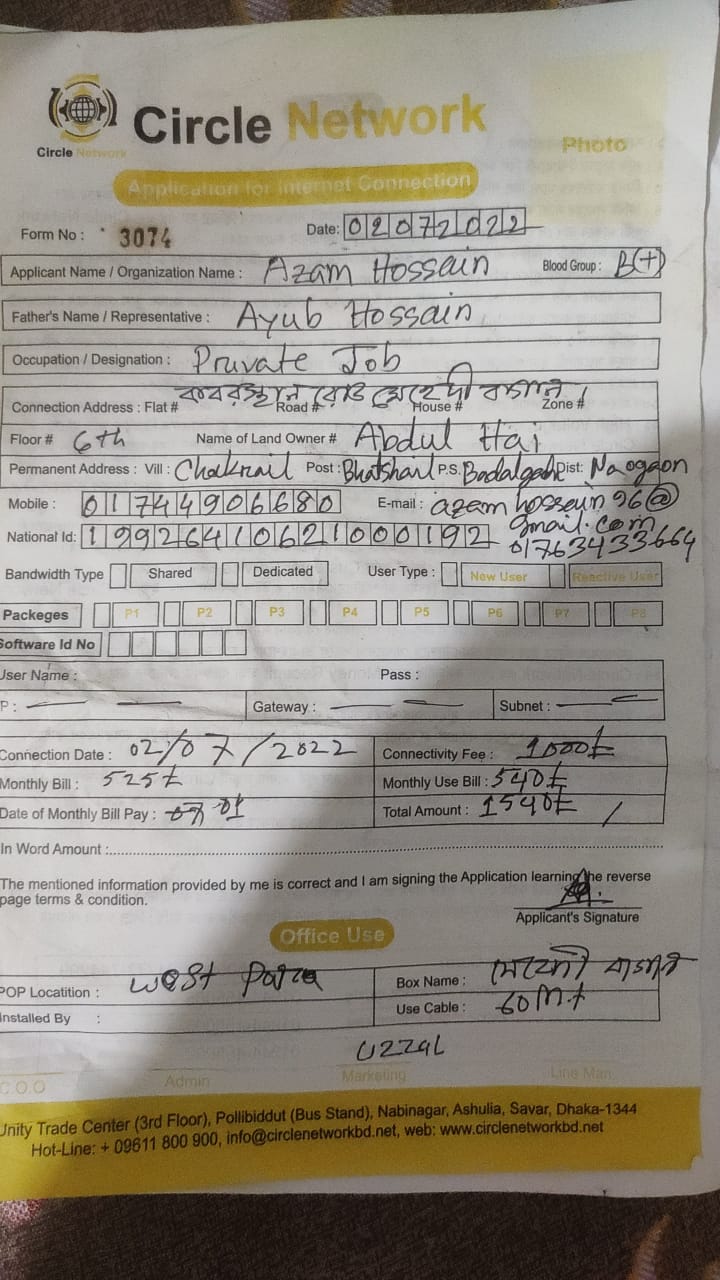 Circle Network
Circle Network
Photo
Application for Internet Connection
Form No : 3074 Date: 02072022
Applicant Name / Organization Name : Azam Hossain Blood Group : B(+)
Father's Name / Representative : Ayub Hossain
Occupation / Designation : Private Job
কবরস্থান রোড মেহেদী বাগান
Connection Address : Flat # Road # House # Zone #
Floor # 6th Name of Land Owner # Abdul Hai
Permanent Address : Vill : Chakrail Post : P.S. Badalgachi Dist: Naogaon
Mobile : 01744906680 E-mail : azam hossain 96@
gmail.com
National Id: 19926410621000192 01763433664
Bandwidth Type Shared Dedicated User Type : New User Reactive User
Packeges P1 P2 P3 P4 P5 P6 P7 P8
Software Id No
User Name : Pass :
P : Gateway : Subnet :
Connection Date : 02/07/2022 Connectivity Fee : 1000৳
Monthly Bill : 525৳ Monthly Use Bill : 540৳
Date of Monthly Bill Pay : Total Amount : 1540৳ /
In Word Amount :
The mentioned information provided by me is correct and I am signing the Application learning the reverse
page terms & condition.
Applicant's Signature
Office Use
POP Locatition : West Para Box Name : মেহেদী বাগান
Installed By : Use Cable : 60 Mt
UZZAL
C.O.O Admin Marketing Line Man
Unity Trade Center (3rd Floor), Pollibiddut (Bus Stand), Nabinagar, Ashulia, Savar, Dhaka-1344
Hot-Line: + 09611 800 900, info@circlenetworkbd.net, web: www.circlenetworkbd.net